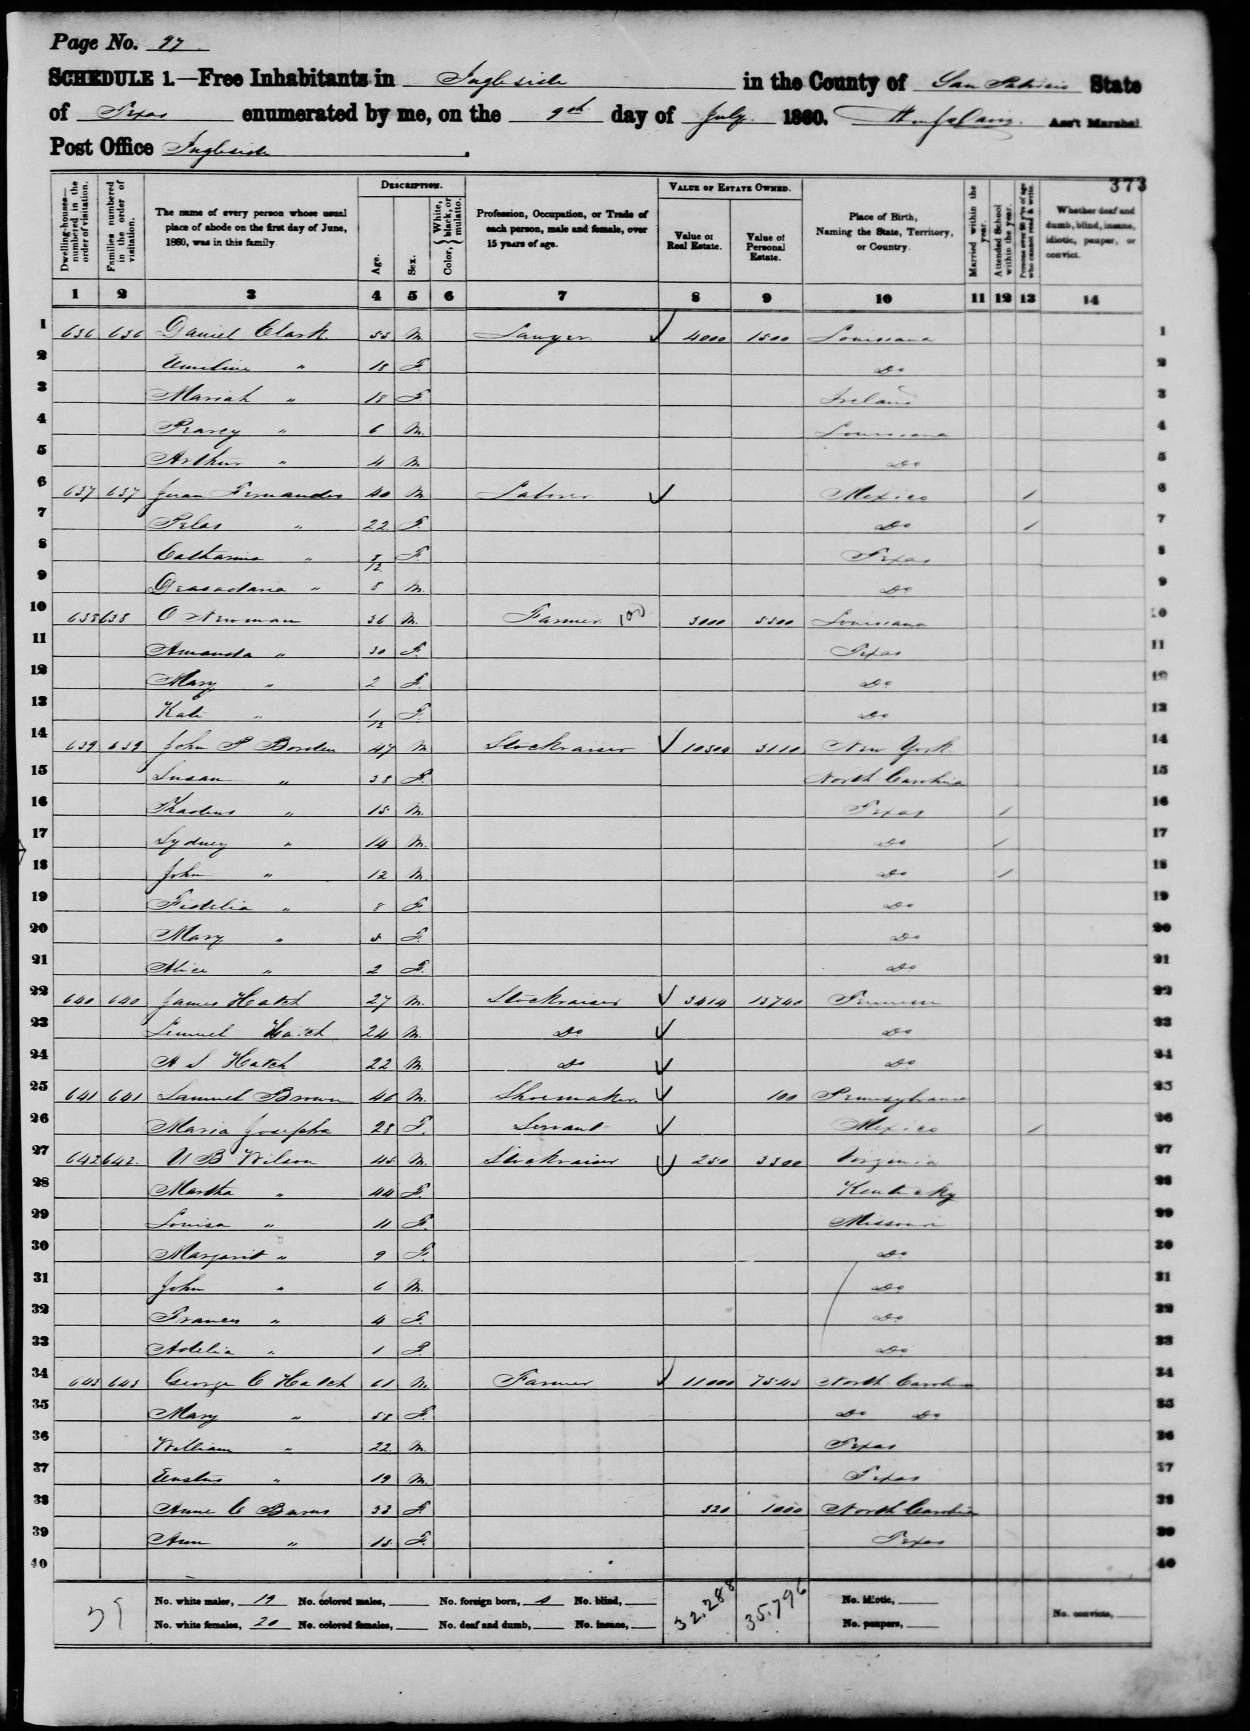 Page No. 97
SCHEDULE 1.—Free Inhabitants in Ingleside in the County of San Patricio State
of Texas enumerated by me, on the 9th day of July 1860. Ass't Marshal
Post Office Ingleside.
373
Dwelling-houses—numbered in the order of visitation.
Families numbered in the order of visitation.
The name of every person whose usual place of abode on the first day of June, 1860, was in this family.
DESCRIPTION.
Age.
Sex.
Color, { White, black, or mulatto.
Profession, Occupation, or Trade of each person, male and female, over 15 years of age.
VALUE OF ESTATE OWNED.
Value of Real Estate.
Value of Personal Estate.
Place of Birth, Naming the State, Territory, or Country.
Married within the year.
Attended School within the year.
Persons over 20 y'rs of age who cannot read & write.
Whether deaf and dumb, blind, insane, idiotic, pauper, or convict.
1 2 3 4 5 6 7 8 9 10 11 12 13 14
1 636 636 Daniel Clark 55 M. Lawyer 4000 1500 Louisiana 1
2 Emeline " 18 F. Do 2
3 Mariah " 18 F. Ireland 3
4 6 M. Louisiana 4
5 Arthur " 4 M Do 5
6 637 637 Juan Fernandes 40 M Laborer Mexico / 6
7 " 22 F. Do / 7
8 Catharina " 8/12 F. Texas 8
9 " 8 M. Do 9
10 638 638 O Newman 36 M. Farmer 100 3000 5500 Louisiana 10
11 Amanda " 30 F. Texas 11
12 Mary " 2 F. Do 12
13 Kate " 1/12 F. Do 13
14 639 639 John P Borden 47 M Stockraiser 10304 3110 New York 14
15 Susan " 38 F. North Carolina 15
16 Thadeus " 15 M. Texas / 16
17 Sydney " 14 M. Do / 17
18 John " 12 M. Do / 18
19 Fidelia " 8 F. Do 19
20 Mary " 5 F. Do 20
21 Alice " 2 F. Do 21
22 640 640 James Hatch 27 M. Stockraiser 3414 13740 22
23 Lemuel Hatch 24 M. Do Do 23
24 A S Hatch 22 M. Do Do 24
25 641 641 Samuel Brown 46 M. Shoemaker 100 Pennsylvania 25
26 Maria Josepha 28 F. Servant Mexico / 26
27 642 642 U B Wilson 45 M. Stockraiser 250 3500 Virginia 27
28 Martha " 44 F. Kentucky 28
29 Louisa " 11 F. Missouri 29
30 Margarit " 9 F. Do 30
31 John " 6 M. Do 31
32 Frances " 4 F. Do 32
33 Adelia " 1 F. Do 33
34 643 643 George C Hatch 61 M. Farmer 11000 7545 North Carolina 34
35 Mary " 58 F. Do Do 35
36 William " 22 M. Texas 36
37 " 19 M. Texas 37
38 Anne C Burns 33 F. 320 1000 North Carolina 38
39 Ann " 15 F. Texas 39
40 40
39 No. white males, 19 No. colored males, No. foreign born, 4 No. blind, 32,288 35,796 No. idiotic,
No. white females, 20 No. colored females, No. deaf and dumb, No. insane, No. paupers, No. convicts,